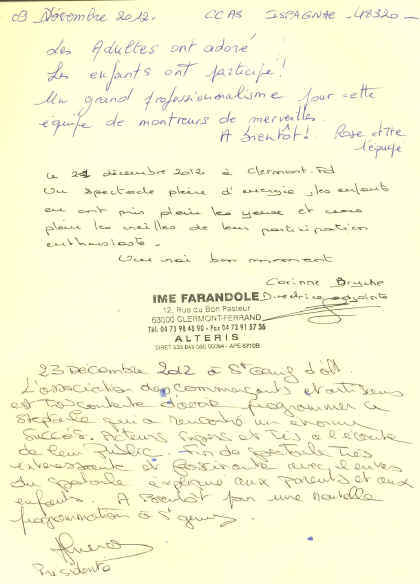 03 Novembre 2012. CCAS ISPAGNAC 48320 -
Les Adultes ont adoré
Les enfants ont participé!
Un grand professionnalisme pour cette
équipe de montreurs de merveilles.
A bientôt! Rose et tte
l'équipe
Le 21 décembre 2012 à Clermont-Fd
Un spectacle pleine d'énergie, les enfants
en ont pris plein les yeux et nous
plein les oreilles de leur participation
enthousiaste.
Un vrai bon moment
Corinne
Directrice adjointe
IME FARANDOLE
12, Rue du Bon Pasteur
63000 CLERMONT-FERRAND
Tél. 04 73 98 48 90 - Fax 04 73 91 37 36
ALTERIS
23 Décembre 2012 à St
L'association des commerçants et artisans
est très contente d'avoir programmer ce
spectacle qui a rencontré un énorme
succès. Acteurs supers et très à l'écoute
de leur public. Fin de spectacle très
intéressante et
du spectacle expliqué aux parents et aux
enfants. A bientôt par une nouvelle
programmation à St
Présidente